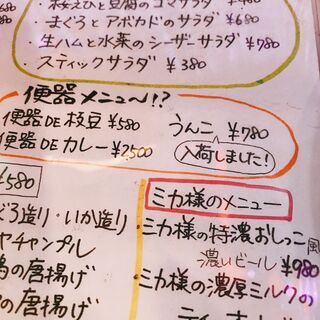 ・桜えびと豆腐のゴマサラダ
・まぐろとアボカドのサラダ ¥680
・生ハムと水菜のシーザーサラダ ¥780
・スティックサラダ ¥380
便器メニュ〜!?
便器DE枝豆 ¥580
便器DEカレー ¥2,500
うんこ ¥780
入荷しました!
¥580
造り・いか造り
ヤチャンプル
の唐揚げ
の唐揚げ
ミカ様のメニュー
・ミカ様の特濃おしっこ風
濃いビール ¥980
・ミカ様の濃厚ミルクの